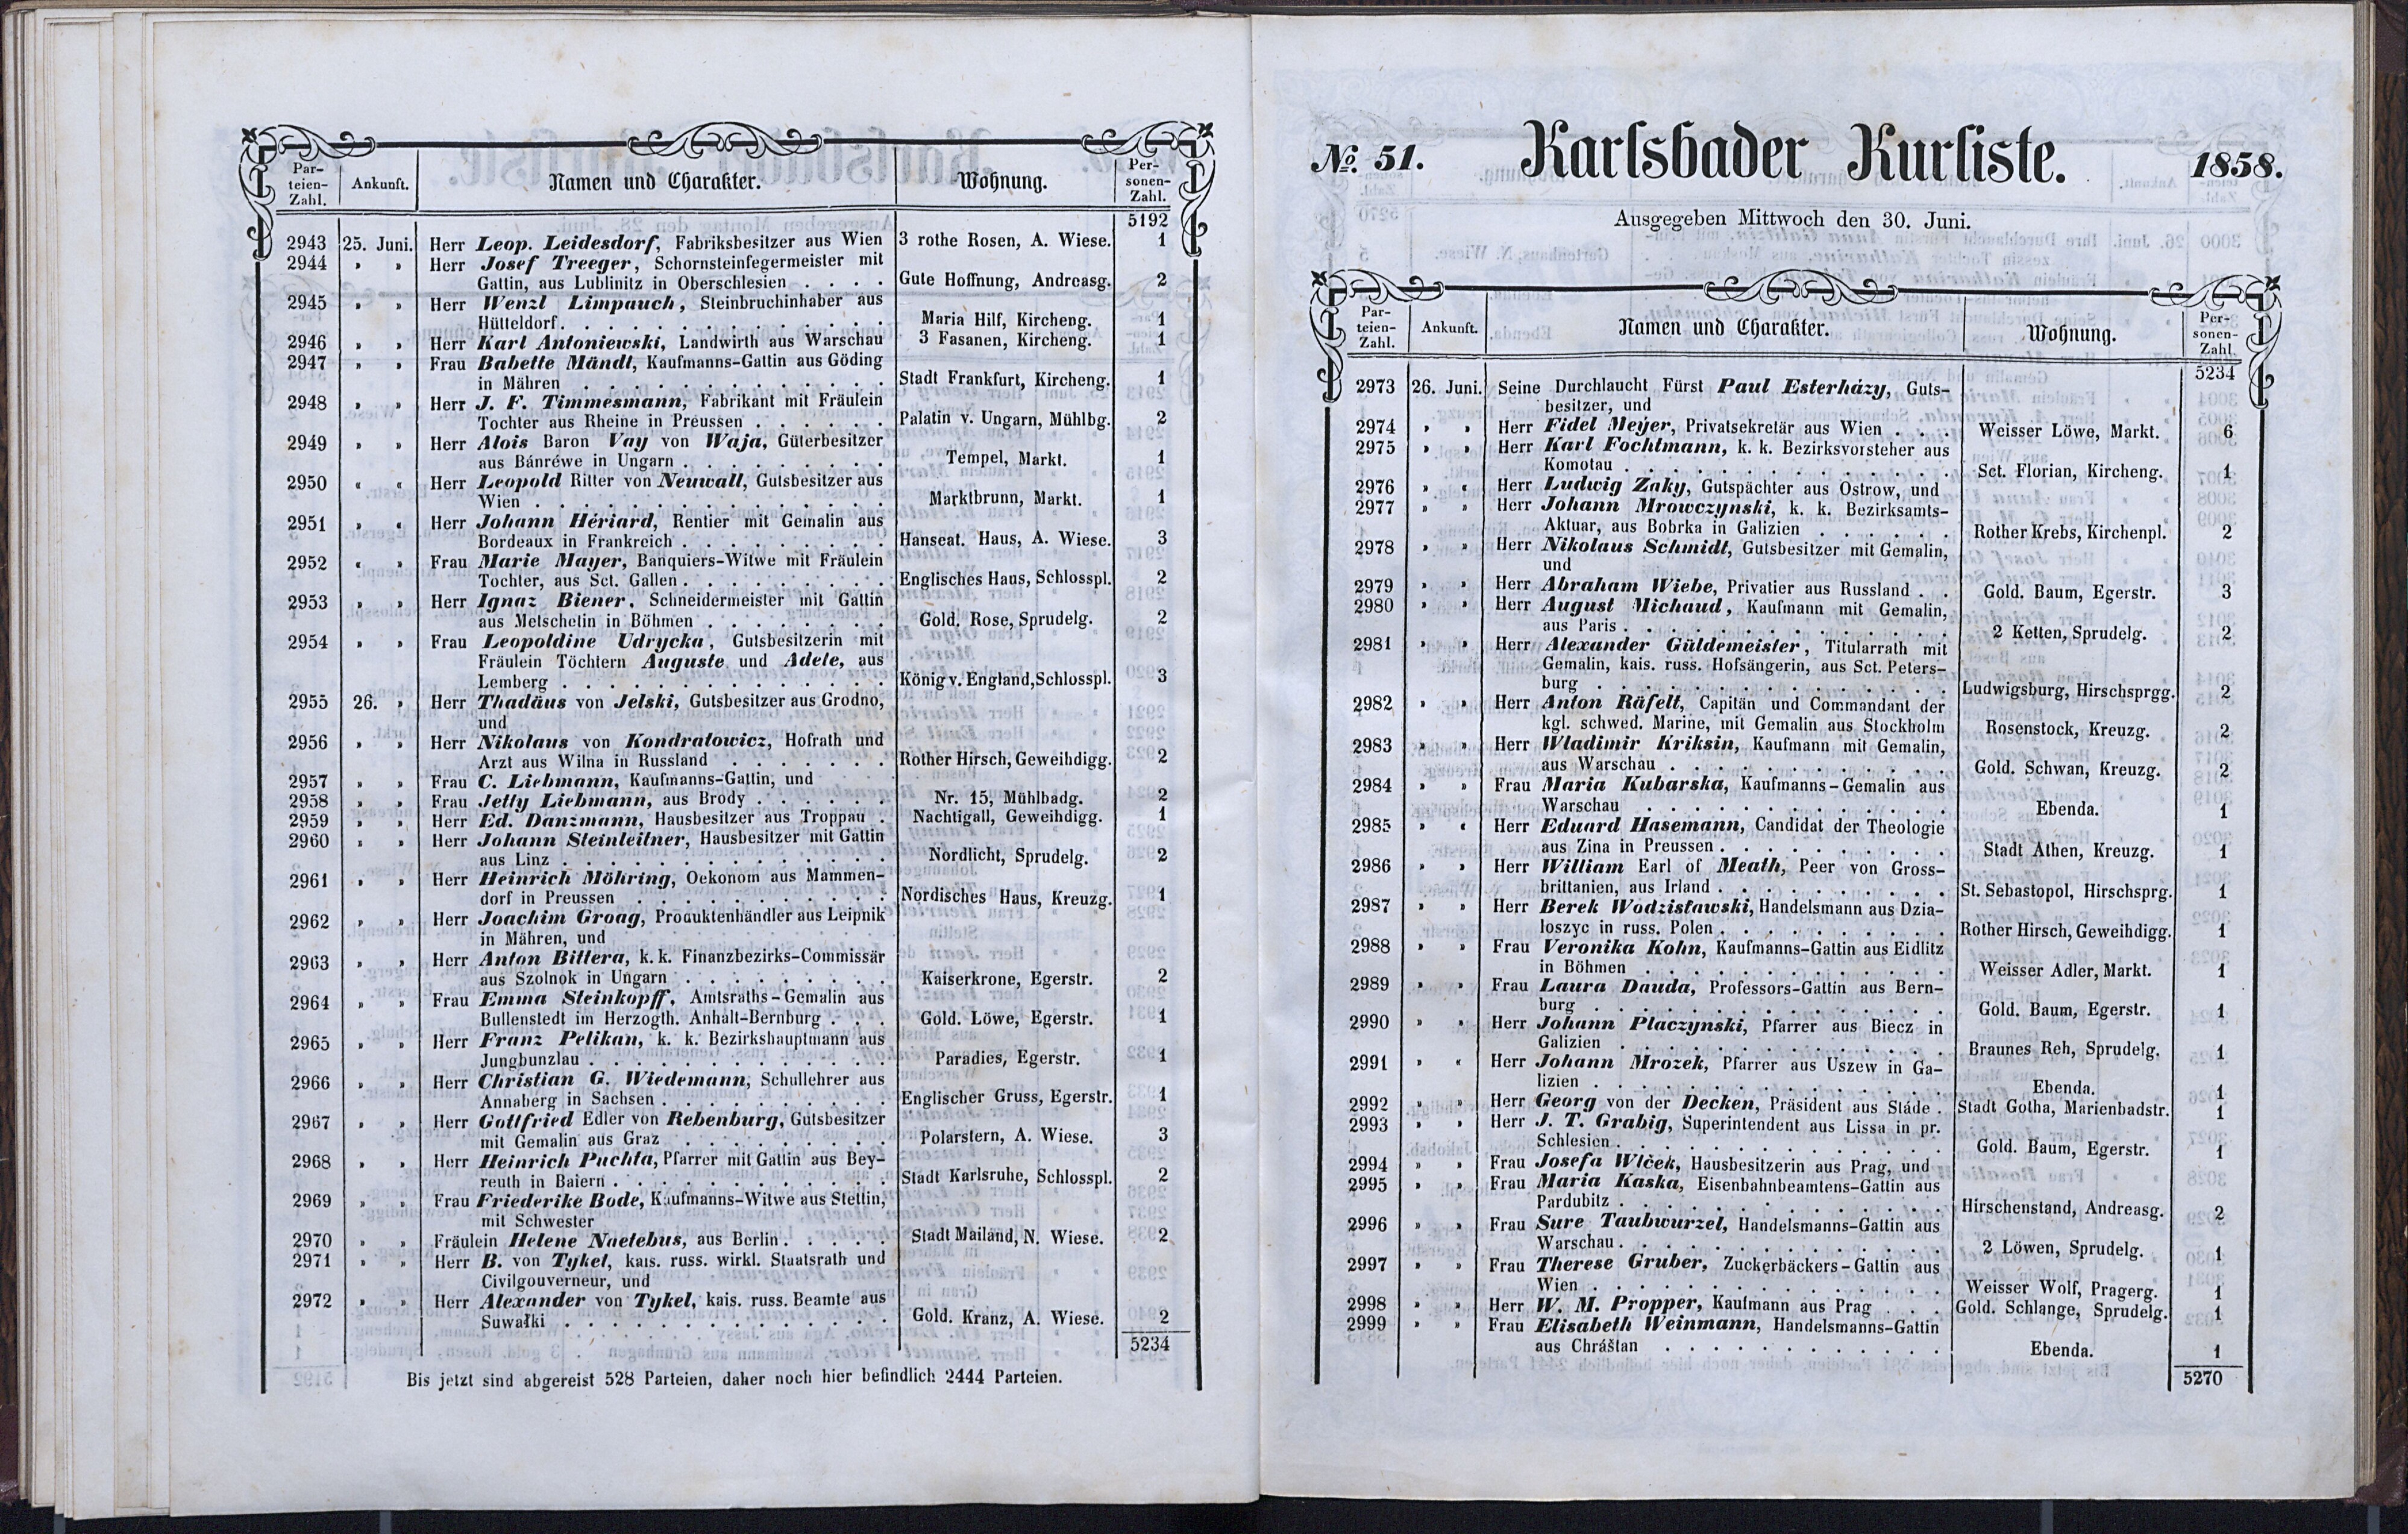 Par-
teien-
Zahl.
Ankunft.
Namen und Charakter.
Wohnung.
Per-
sonen-
Zahl.
5192
2943 25. Juni. Herr Leop. Leidesdorf, Fabriksbesitzer aus Wien 3 rothe Rosen, A. Wiese. 1
2944 » » Herr Josef Treeger, Schornsteinfegermeister mit
Gattin, aus Lublinitz in Oberschlesien . . . . Gute Hoffnung, Andreasg. 2
2945 » » Herr Wenzl Limpauch, Steinbruchinhaber aus
Hütteldorf. . . . . . . . . . . . . Maria Hilf, Kircheng. 1
2946 » » Herr Karl Antoniewski, Landwirth aus Warschau 3 Fasanen, Kircheng. 1
2947 » » Frau Babette Mändl, Kaufmanns-Gattin aus Göding
in Mähren . . . . . . . . . . . . . Stadt Frankfurt, Kircheng. 1
2948 » » Herr J. F. Timmesmann, Fabrikant mit Fräulein
Tochter aus Rheine in Preussen . . . . . . Palatin v. Ungarn, Mühlbg. 2
2949 » » Herr Alois Baron Vay von Waja, Güterbesitzer
aus Bánréwe in Ungarn . . . . . . . . . Tempel, Markt. 1
2950 « « Herr Leopold Ritter von Neuwall, Gutsbesitzer aus
Wien . . . . . . . . . . . . . . . Marktbrunn, Markt. 1
2951 » « Herr Johann Hériard, Rentier mit Gemalin aus
Bordeaux in Frankreich . . . . . . . . . Hanseat. Haus, A. Wiese. 3
2952 « » Frau Marie Mayer, Banquiers-Witwe mit Fräulein
Tochter, aus Sct. Gallen . . . . . . . . . Englisches Haus, Schlosspl. 2
2953 » » Herr Ignaz Biener, Schneidermeister mit Gattin
aus Metschetin in Böhmen . . . . . . . . Gold. Rose, Sprudelg. 2
2954 » » Frau Leopoldine Udrycka, Gutsbesitzerin mit
Fräulein Töchtern Auguste und Adele, aus
Lemberg . . . . . . . . . . . . . . König v. England, Schlosspl. 3
2955 26. » Herr Thadäus von Jelski, Gutsbesitzer aus Grodno,
und
2956 » » Herr Nikolaus von Kondratowicz, Hofrath und
Arzt aus Wilna in Russland . . . . . . . Rother Hirsch, Geweihdigg. 2
2957 » » Frau C. Liebmann, Kaufmanns-Gattin, und
2958 » » Frau Jetty Liebmann, aus Brody . . . . . . Nr. 15, Mühlbadg. 2
2959 » » Herr Ed. Danzmann, Hausbesitzer aus Troppau . Nachtigall, Geweihdigg. 1
2960 » » Herr Johann Steinleitner, Hausbesitzer mit Gattin
aus Linz . . . . . . . . . . . . . . Nordlicht, Sprudelg. 2
2961 » » Herr Heinrich Möhring, Oekonom aus Mammen-
dorf in Preussen . . . . . . . . . . . Nordisches Haus, Kreuzg. 1
2962 » » Herr Joachim Groag, Produktenhändler aus Leipnik
in Mähren, und
2963 » » Herr Anton Bittera, k. k. Finanzbezirks-Commissär
aus Szolnok in Ungarn . . . . . . . . . Kaiserkrone, Egerstr. 2
2964 » » Frau Emma Steinkopff, Amtsraths-Gemalin aus
Bullenstedt im Herzogth. Anhalt-Bernburg . . . Gold. Löwe, Egerstr. 1
2965 » » Herr Franz Pelikan, k. k. Bezirkshauptmann aus
Jungbunzlau . . . . . . . . . . . . . Paradies, Egerstr. 1
2966 » » Herr Christian G. Wiedemann, Schullehrer aus
Annaberg in Sachsen . . . . . . . . . . Englischer Gruss, Egerstr. 1
2967 » » Herr Gottfried Edler von Rebenburg, Gutsbesitzer
mit Gemalin aus Graz . . . . . . . . . Polarstern, A. Wiese. 3
2968 » » Herr Heinrich Puchta, Pfarrer mit Gattin aus Bey-
reuth in Baiern . . . . . . . . . . . . Stadt Karlsruhe, Schlosspl. 2
2969 » » Frau Friederike Bode, Kaufmanns-Witwe aus Stettin,
mit Schwester
2970 » » Fräulein Helene Naetebus, aus Berlin . . . . . Stadt Mailand, N. Wiese. 2
2971 » » Herr B. von Tykel, kais. russ. wirkl. Staatsrath und
Civilgouverneur, und
2972 » » Herr Alexander von Tykel, kais. russ. Beamte aus
Suwałki . . . . . . . . . . . . . . Gold. Kranz, A. Wiese. 2
5234
Bis jetzt sind abgereist 528 Parteien, daher noch hier befindlich 2444 Parteien.
No. 51. Karlsbader Kurliste. 1858.
Ausgegeben Mittwoch den 30. Juni.
Par-
teien-
Zahl.
Ankunft.
Namen und Charakter.
Wohnung.
Per-
sonen-
Zahl.
5234
2973 26. Juni. Seine Durchlaucht Fürst Paul Esterházy, Guts-
besitzer, und
2974 » » Herr Fidel Meyer, Privatsekretär aus Wien . . . Weisser Löwe, Markt. 6
2975 » » Herr Karl Fochtmann, k. k. Bezirksvorsteher aus
Komotau . . . . . . . . . . . . . . Sct. Florian, Kircheng. 1
2976 » « Herr Ludwig Zaky, Gutspächter aus Ostrow, und
2977 » » Herr Johann Mrowczynski, k. k. Bezirksamts-
Aktuar, aus Bobrka in Galizien . . . . . . Rother Krebs, Kirchenpl. 2
2978 » » Herr Nikolaus Schmidt, Gutsbesitzer mit Gemalin,
und
2979 » » Herr Abraham Wiebe, Privatier aus Russland . . Gold. Baum, Egerstr. 3
2980 » » Herr August Michaud, Kaufmann mit Gemalin,
aus Paris . . . . . . . . . . . . . . 2 Ketten, Sprudelg. 2
2981 » » Herr Alexander Güldemeister, Titularrath mit
Gemalin, kais. russ. Hofsängerin, aus Sct. Peters-
burg . . . . . . . . . . . . . . . Ludwigsburg, Hirschsprgg. 2
2982 » » Herr Anton Räfelt, Capitän und Commandant der
kgl. schwed. Marine, mit Gemalin aus Stockholm Rosenstock, Kreuzg. 2
2983 » » Herr Wladimir Kriksin, Kaufmann mit Gemalin,
aus Warschau . . . . . . . . . . . . Gold. Schwan, Kreuzg. 2
2984 » » Frau Maria Kubarska, Kaufmanns-Gemalin aus
Warschau . . . . . . . . . . . . . . Ebenda. 1
2985 » « Herr Eduard Hasemann, Candidat der Theologie
aus Zina in Preussen . . . . . . . . . . Stadt Athen, Kreuzg. 1
2986 » » Herr William Earl of Meath, Peer von Gross-
brittanien, aus Irland . . . . . . . . . . St. Sebastopol, Hirschsprg. 1
2987 » » Herr Berek Wodzisławski, Handelsmann aus Dzia-
loszyc in russ. Polen . . . . . . . . . . Rother Hirsch, Geweihdigg. 1
2988 » » Frau Veronika Kohn, Kaufmanns-Gattin aus Eidlitz
in Böhmen . . . . . . . . . . . . . Weisser Adler, Markt. 1
2989 » » Frau Laura Dauda, Professors-Gattin aus Bern-
burg . . . . . . . . . . . . . . . Gold. Baum, Egerstr. 1
2990 » » Herr Johann Płaczynski, Pfarrer aus Biecz in
Galizien . . . . . . . . . . . . . . Braunes Reh, Sprudelg. 1
2991 » « Herr Johann Mrozek, Pfarrer aus Uszew in Ga-
lizien . . . . . . . . . . . . . . . Ebenda. 1
2992 » » Herr Georg von der Decken, Präsident aus Stade . Stadt Gotha, Marienbadstr. 1
2993 » » Herr J. T. Grabig, Superintendent aus Lissa in pr.
Schlesien . . . . . . . . . . . . . . Gold. Baum, Egerstr. 1
2994 » » Frau Josefa Wlček, Hausbesitzerin aus Prag, und
2995 » » Frau Maria Kaska, Eisenbahnbeamtens-Gattin aus
Pardubitz . . . . . . . . . . . . . . Hirschenstand, Andreasg. 2
2996 » » Frau Sure Taubwurzel, Handelsmanns-Gattin aus
Warschau . . . . . . . . . . . . . . 2 Löwen, Sprudelg. 1
2997 » » Frau Therese Gruber, Zuckerbäckers-Gattin aus
Wien . . . . . . . . . . . . . . . Weisser Wolf, Pragerg. 1
2998 » » Herr W. M. Propper, Kaufmann aus Prag . . . Gold. Schlange, Sprudelg. 1
2999 » » Frau Elisabeth Weinmann, Handelsmanns-Gattin
aus Chrášťan . . . . . . . . . . . . Ebenda. 1
5270